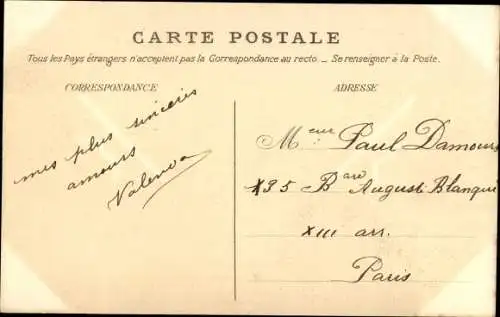 CARTE POSTALE
Tous les Pays étrangers n'acceptent pas la Correspondance au recto. _ Se renseigner à la Poste.
CORRESPONDANCE
mes plus sincères
amours
ADRESSE
Meur Paul Damours
Bard Auguste Blanqui
XIII arr.
Paris